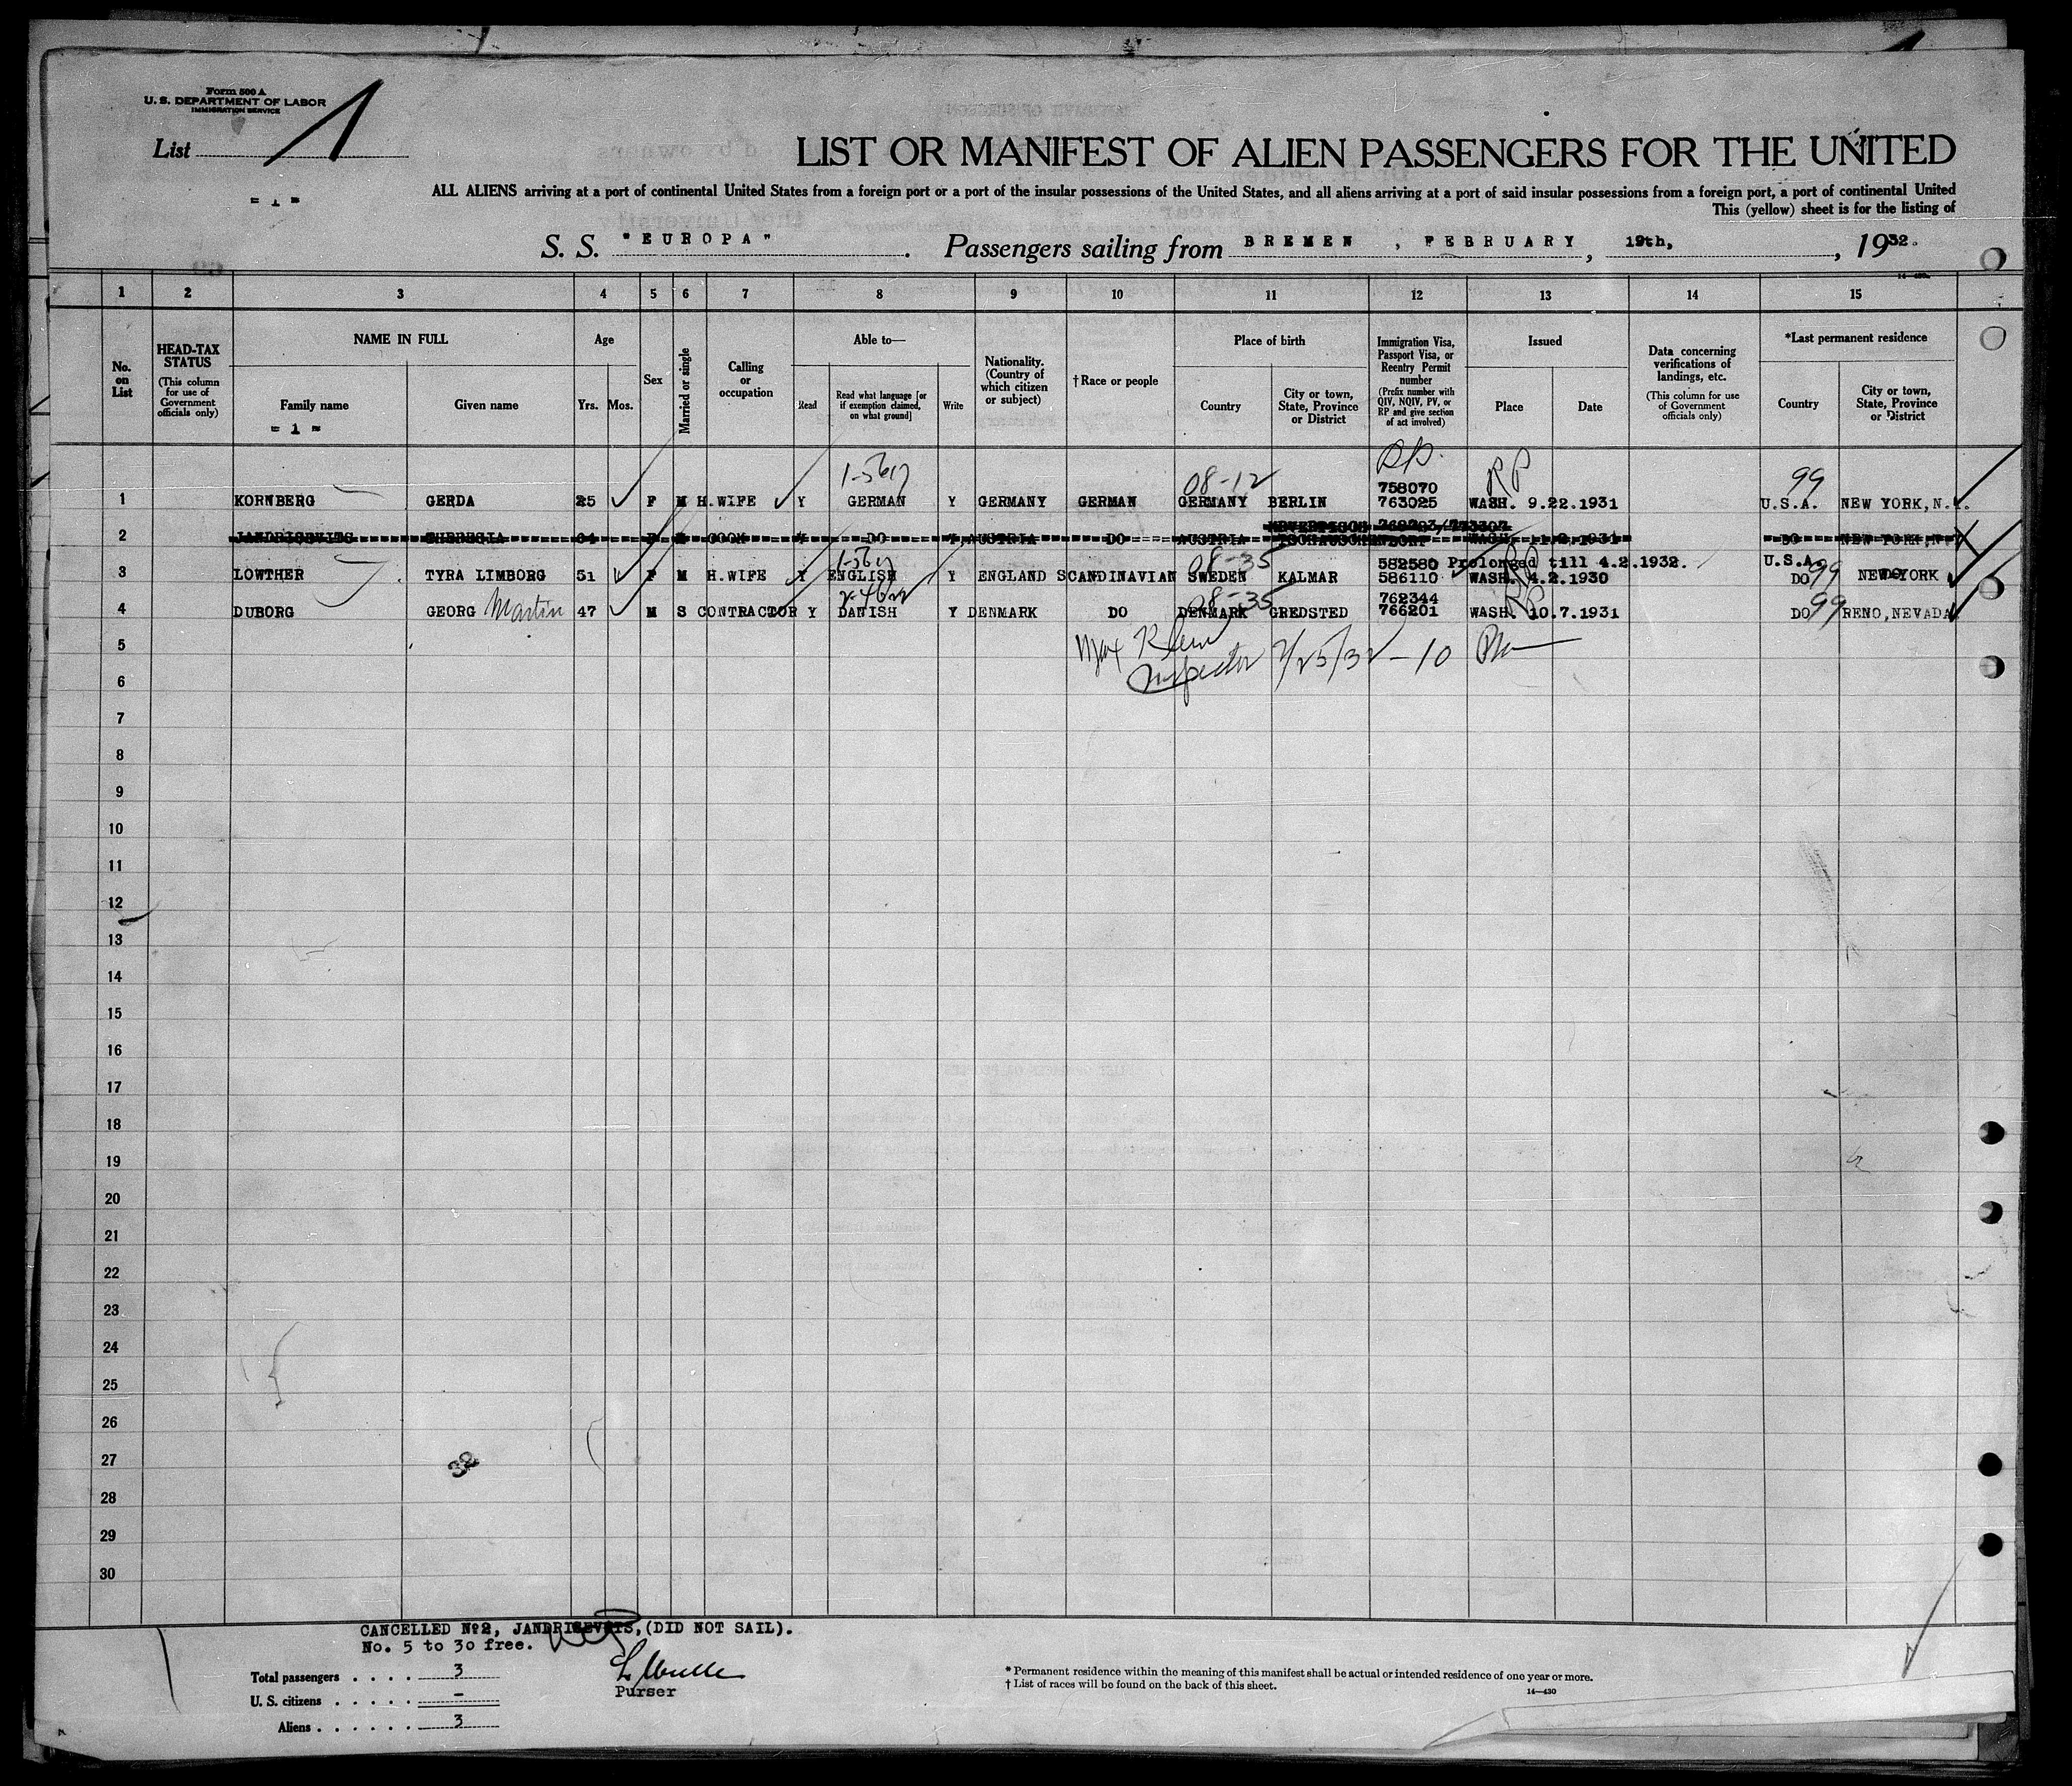 Form 500 A
U. S. DEPARTMENT OF LABOR
IMMIGRATION SERVICE
List 1
= 1 =
LIST OR MANIFEST OF ALIEN PASSENGERS FOR THE UNITED
ALL ALIENS arriving at a port of continental United States from a foreign port or a port of the insular possessions of the United States, and all aliens arriving at a port of said insular possessions from a foreign port, a port of continental United
This (yellow) sheet is for the listing of
S. S. "EUROPA". Passengers sailing from BREMEN, FEBRUARY, 19th, , 1932.
1 2 3 4 5 6 7 8 9 10 11 12 13 14 15
No. on List
HEAD-TAX STATUS
(This column for use of Government officials only)
NAME IN FULL
Family name
= 1 =
Given name
Age
Yrs. Mos.
Sex
Married or single
Calling or occupation
Able to—
Read
Read what language [or if exemption claimed, on what ground]
Write
Nationality. (Country of which citizen or subject)
†Race or people
Place of birth
Country
City or town, State, Province or District
Immigration Visa, Passport Visa, or Reentry Permit number
(Prefix number with QIV, NQIV, PV, or RP and give section of act involved)
Issued
Place
Date
Data concerning verifications of landings, etc.
(This column for use of Government officials only)
*Last permanent residence
Country
City or town, State, Province or District
RP.
08-12 758070 RP 99
1 KORNBERG GERDA 25 F M H.WIFE Y GERMAN Y GERMANY GERMAN GERMANY BERLIN 763025 WASH. 9.22.1931 U.S.A. NEW YORK, N.Y.
2 JANDRISEVITS THERESIA F COOK DO AUSTRIA DO AUSTRIA DO NEW YORK, N.Y.
08-35 582580 Prolonged till 4.2.1932. U.S.A.
3 LOWTHER TYRA LIMBORG 51 F M H.WIFE Y ENGLISH Y ENGLAND SCANDINAVIAN SWEDEN KALMAR 586110 WASH. 4.2.1930 DO 99 NEW YORK
08-35 762344 RP
4 DUBORG GEORG Martin 47 M S CONTRACTOR Y DANISH Y DENMARK DO DENMARK GREDSTED 766201 WASH. 10.7.1931 DO 99 RENO, NEVADA
5 Max Klein
6 Inspector 2/25/32 - 10
7
8
9
10
11
12
13
14
15
16
17
18
19
20
21
22
23
24
25
26
27 32
28
29
30
CANCELLED №2, JANDRISEVITS, (DID NOT SAIL).
No. 5 to 30 free.
Total passengers . . . . 3
U. S. citizens . . . . . –
Aliens . . . . . . 3
Purser
* Permanent residence within the meaning of this manifest shall be actual or intended residence of one year or more.
† List of races will be found on the back of this sheet.
14—430